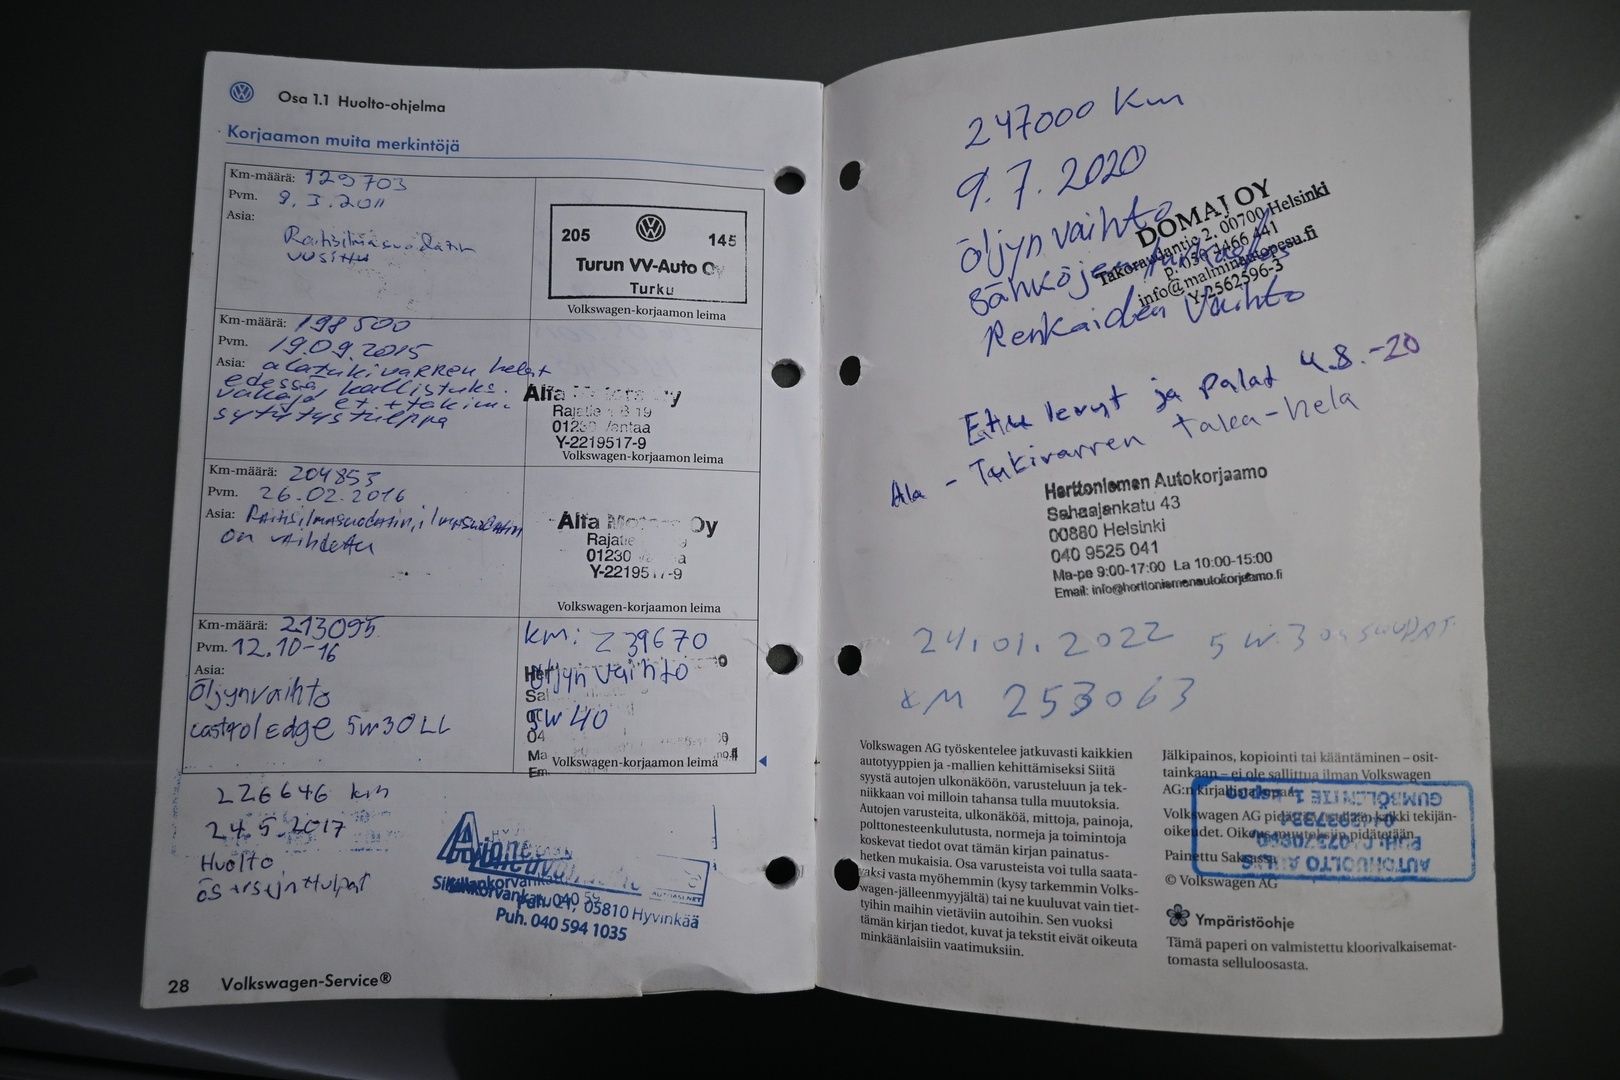 Osa 1.1 Huolto-ohjelma
Korjaamon muita merkintöjä
Km-määrä: 129703
Pvm. 9.3.2011
Asia:
Raitisilmasuodatin
vusittu
205 145
Turun VV-Auto Oy
Turku
Volkswagen-korjaamon leima
Km-määrä: 198500
Pvm. 19.09.2015
Asia: alatukivarren helat
edessä, kallistuks.
sytytystulppa
Alfa Motors Oy
Rajatie 8 19
01230 Vantaa
Y-2219517-9
Volkswagen-korjaamon leima
Km-määrä: 204853
Pvm. 26.02.2016
Asia: Raitisilmasuodatin, ilmasuodatin
on vaihdettu
Alfa Motors Oy
Rajatie
01230
Y-2219517-9
Volkswagen-korjaamon leima
Km-määrä: 213095
Pvm. 12.10-16
Asia:
Öljynvaihto
castrol Edge 5w30LL
km: 239670
öljyn vaihto
5W40
Volkswagen-korjaamon leima
226646 km
24.5.2017
Huolto
05810 Hyvinkää
Puh. 040 594 1035
28 Volkswagen-Service®
247000 Km
9.7.2020
öljyn vaihto
Renkaiden Vaihto
DOMAJ OY
2, 00700 Helsinki
info@malminautopesu.fi
Y-2562596-3
Etu levyt ja palat 4.8.-20
Ala-Tukivarren taka-hela
Herttoniemen Autokorjaamo
Sahaajankatu 43
00880 Helsinki
040 9525 041
Ma-pe 9:00-17:00 La 10:00-15:00
Email: info@herttoniemenautokorjaamo.fi
24.01.2022 5w30
KM 253063
Volkswagen AG työskentelee jatkuvasti kaikkien
autotyyppien ja -mallien kehittämiseksi Siitä
syystä autojen ulkonäköön, varusteluun ja tek-
niikkaan voi milloin tahansa tulla muutoksia.
Autojen varusteita, ulkonäköä, mittoja, painoja,
polttonesteenkulutusta, normeja ja toimintoja
koskevat tiedot ovat tämän kirjan painatus-
hetken mukaisia. Osa varusteista voi tulla saata-
vaksi vasta myöhemmin (kysy tarkemmin Volks-
wagen-jälleenmyyjältä) tai ne kuuluvat vain tiet-
tyihin maihin vietäviin autoihin. Sen vuoksi
tämän kirjan tiedot, kuvat ja tekstit eivät oikeuta
minkäänlaisiin vaatimuksiin.
Jälkipainos, kopiointi tai kääntäminen – osit-
tainkaan – ei ole sallittua ilman Volkswagen
AG:n kirjallista lupaa.
Volkswagen AG pidättää itsellään kaikki tekijän-
oikeudet. Oikeus muutoksiin pidätetään.
Painettu Saksassa
© Volkswagen AG
AUTOHUOLTO
GUMBÖLENTIE 1 Espoo
Ympäristöohje
Tämä paperi on valmistettu kloorivalkaisemat-
tomasta selluloosasta.